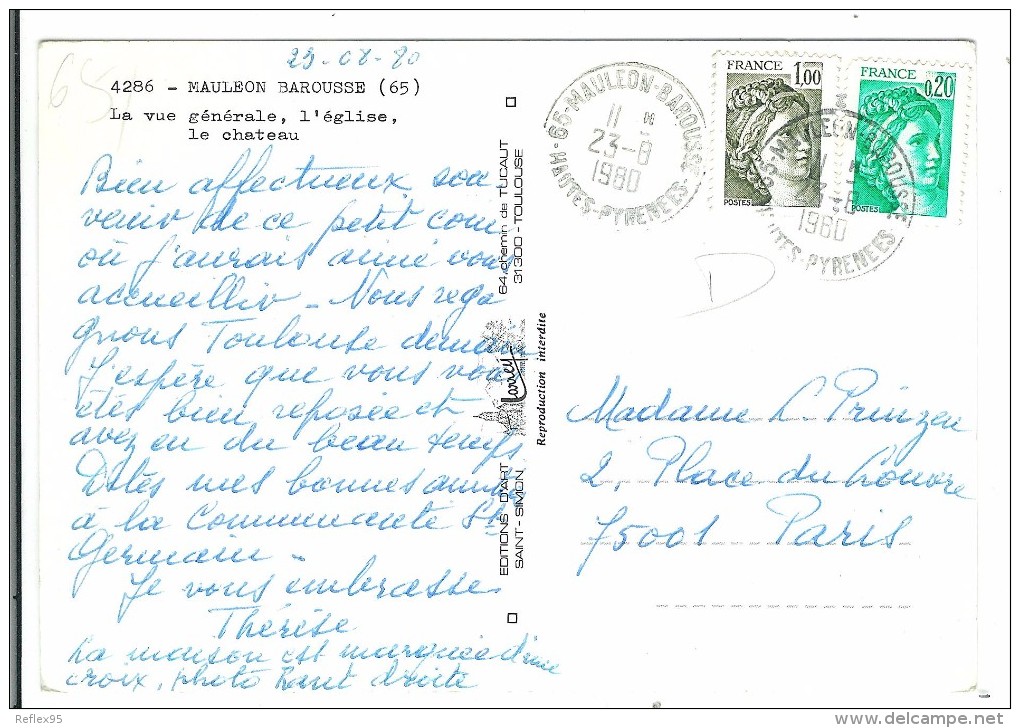 23-08-80
4286 - MAULEON BAROUSSE (65)
La vue générale, l'église,
le chateau
Bien affectueux sou
venir de ce petit coin
où j'aurais aimé vous
accueillir - Nous rega
gnons Toulouse demain
J'espère que vous vous
êtes bien reposée et
avez eu du beau temps
Dites mes bonnes amitiés
à la Communauté St
Germain -
Je vous embrasse
Thérèse
La maison est marquée d'une
croix, photo haut droite
EDITIONS D'ART
SAINT-SIMON
Larrey
64, chemin de TUCAUT
31300 - TOULOUSE
Reproduction interdite
65-MAULEON-BAROUSSE
11 H
23-8
1980
HAUTES-PYRENEES
FRANCE
1,00
POSTES
FRANCE
0,20
POSTES
65-MAULEON-BAROUSSE
1980
HAUTES-PYRENEES
D
Madame L. Prinzen
2, Place du Louvre
75001 Paris
Reflex95
delcampe.net